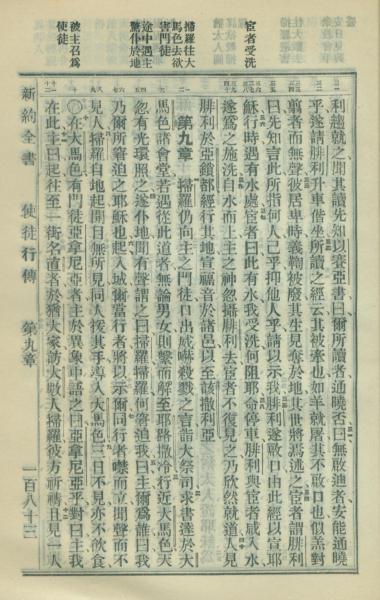 宦者受洗
掃羅往大
馬色去欲
害門徒
途中遇主
驚仆於地
被主召為
使徒
利趨就之聞其讀先知以賽亞書曰爾所讀者通曉否曰無啟迪者安能通曉
乎遂請腓利升車偕坐所讀之經云其被牽也如羊就屠其不啟口也似羔對
翦者而無聲彼居卑時義鞫被廢其生見奪於地其世將焉述之宦者謂腓利
曰先知言此所指何人己乎抑他人乎請以示我腓利遂啟口由此經以宣耶
穌行時遇有水處宦者曰此有水我受洗何阻耶命停車腓利與宦者咸入水
遂為之施洗自水而上主之神忽攝腓利去宦者不復見之乃欣然就道人見
腓利於亞鎖都經行其地宣福音於諸邑以至該撒利亞
第九章 掃羅仍向主之門徒口出威嚇殺戮之言詣大祭司求書達於大
馬色諸會堂若遇從此道者無論男女則繫而解至耶路撒冷行近大馬色天
忽有光環照之遂仆地聞有聲謂之曰掃羅掃羅何窘迫我曰主爾為誰曰我
乃爾所窘迫之耶穌也起入城爾當行者將以示爾同行者噤而立聞聲而不
見人掃羅自地起開目無所見同人援其手導入大馬色三日不見亦不飲食
〇在大馬色有門徒亞拿尼亞者主於異象中語之曰亞拿尼亞乎對曰主我
在此主曰起往至一街名直者於猶大家訪大數人掃羅彼方祈禱且見一人
新約全書 使徒行傳 第九章 一百八十三